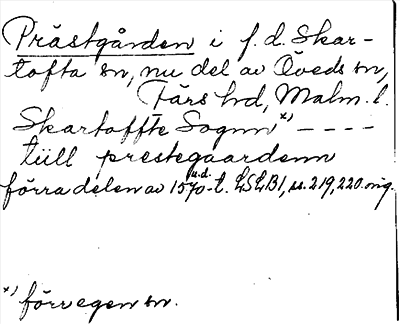 Prästgården i f.d. Skar-
tofta sn, nu del av Öveds sn,
Färs hd, Malm. l.
Skartoffte Sognn *) - - - -
tiill prestegaardenn
förra delen av 1570-t. u.d. LSLB1, ss. 219, 220. orig.
*) förvegen sn.